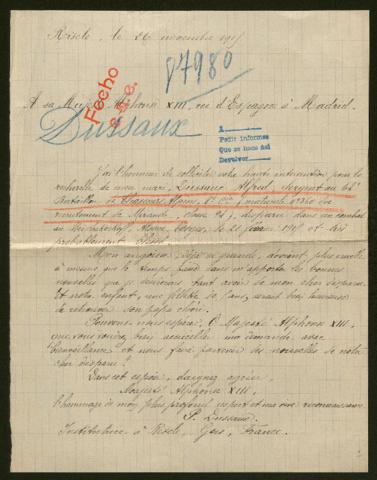 Riscle, le 26 novembre 1915
87980
A sa Majesté Alphonse XIII, roi d'Espagne à Madrid.
Fecho
Dussaux
A
Pedir informes
Que se hace así
Devolver
J'ai l'honneur de solliciter votre haute intervention pour la
recherche de mon mari, Dussaux Alfred, Sergent au 6
Bataillon de Chasseurs Alpins, 8e Cie (matricule
recrutement de Mirande, classe ), disparu dans un combat
au Reichackerkopf, Alsace, Vosges, le 21 1915 et fait
probablement blessé.
Mon angoisse, déjà si grande, devient plus cruelle
à mesure que le temps passe sans m'apporter les bonnes
nouvelles que je désirerais tant avoir de mon cher disparu.
Et notre enfant, une fillette de 10 ans, serait bien heureuse
de retrouver son papa chéri.
Pouvons-nous espérer, O Majesté Alphonse XIII,
que vous voudrez bien accueillir ma demande avec
bienveillance et nous faire parvenir des nouvelles de notre
cher disparu?
Dans cet espoir, daignez agréer,
Majesté Alphonse XIII,
l'hommage de mon plus profond respect et ma vive reconnaissance
P. Dussaux
Institutrice à Riscle, Gers, France.